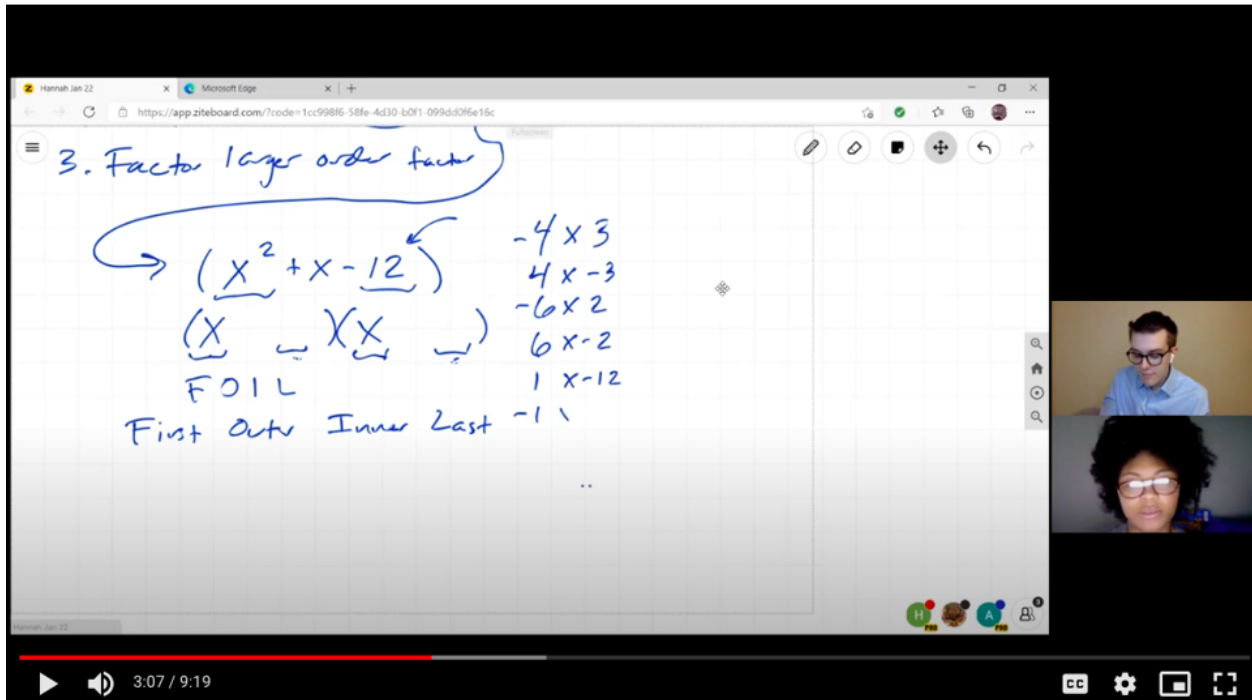 Hannah Jan 22
Microsoft Edge
https://app.ziteboard.com/?code=1cc998f6-58fe-4d30-b0f1-099dd0f6e16c
Fullscreen
3. Factor larger order factor
(x² + x - 12)
(x )(x )
FOIL
First Outr Inner Last
-4 x 3
4 x -3
-6 x 2
6 x -2
1 x -12
-1
H
PRO
A
PRO
3
Hannah Jan 22
3:07 / 9:19
CC